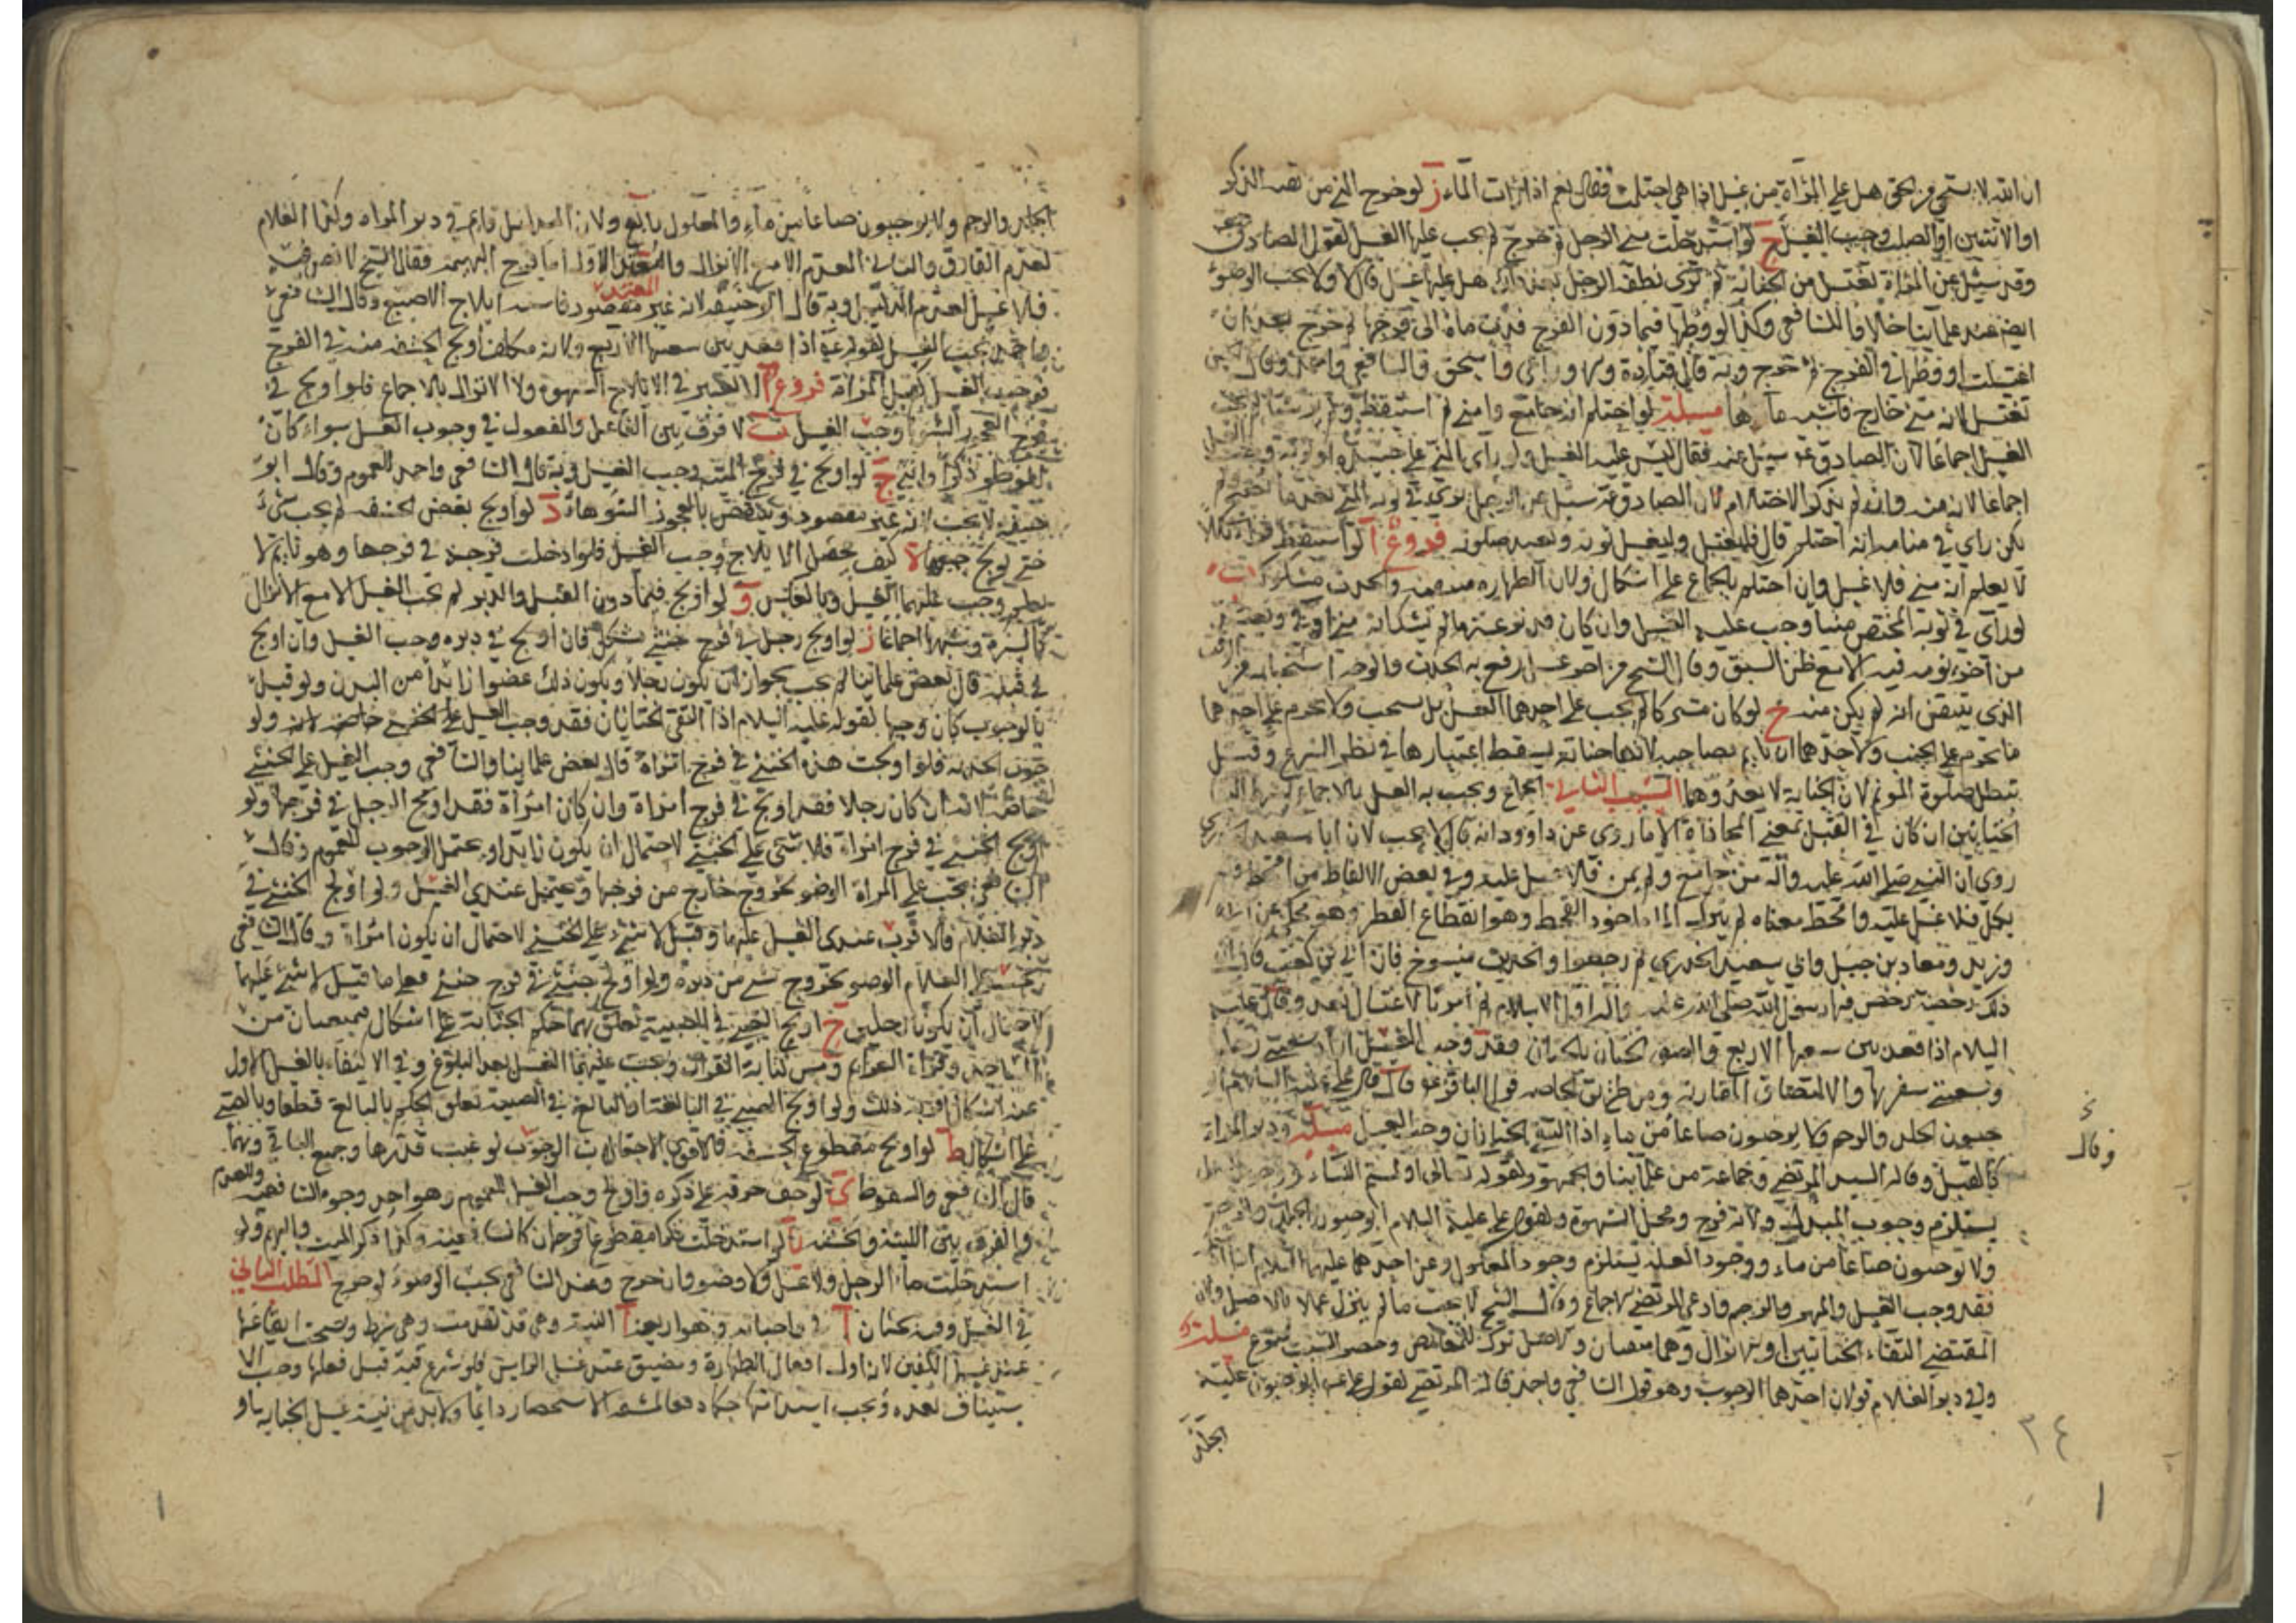 ان الله لا يستحي من الحق هل على المرأة من غسل اذا هي احتلمت فقال نعم اذا رات الماء ز لو خرج المني من ثقبه الذكر
او الانثيين او الصلب وجب الغسل ح لو استدخلت مني الرجل ثم خرج لم يجب عليها الغسل لقول الصادق
وقد سئل عن المرأة تغتسل من الجنابة ثم ترى نطفة الرجل بعد ذلك هل عليها غسل قال لا ولا يجب الوضوء
ايضا عند علمائنا خلافا للشافعي وكذا لو وطئها فيما دون الفرج فدب ماؤه الى فرجها ثم خرج بعد ان
اغتسلت او وطئها في الفرج ثم خرج وبه قال قتادة والاوزاعي واسحق وقال الشافعي واحمد وقال الحسن
تغتسل لانه مني خارج فاشبه ماءها مسئلة لو احتلم انه جامع وامنى ثم استيقظ ولم ير شيئا لم يجب
الغسل اجماعا لان الصادق ع سئل عنه فقال ليس عليه الغسل ولو راى المني على جسده او ثوبه وجب الغسل
اجماعا لانه منه وان لم يذكر الاحتلام لان الصادق ع سئل عن الرجل يرى في ثوبه المني بعد ما يصبح ولم
يكن راى في منامه انه احتلم قال فليغتسل وليغسل ثوبه ويعيد صلوته فروع ا لو استيقظ فراى بللا
لا يعلم انه مني فلا غسل وان احتلم بالجماع على اشكال ولان الطهارة متيقنة والحدث مشكوك ب
لو راى في ثوبه المختص منيا وجب عليه الغسل وان كان قد نزعه ما لم يشك انه مني او مذي ويعتبر
من آخر نومه فيه الا مع ظن السبق وقال الشيخ من آخر غسل رفع به الحدث والوجه استحبابه من
الذي يتيقن انه لم يكن منه ج لو كان مشتركا لم يجب على احدهما الغسل بل يستحب ولا يحرم على احدهما
ما يحرم على الجنب ولاحدهما ان ياتم بصاحبه لانها جنابة يسقط اعتبارها في نظر الشرع وقيل
تبطل صلوة المؤتم لان الجنابة لا يعدوهما السبب الثاني الجماع ويجب به الغسل بالاجماع بشرط التقاء
الختانين ان كان في القبل بمعنى المحاذاة الا ما روي عن داوود انه قال لا يجب لان ابا سعيد الخدري
روى ان النبي صلى الله عليه وآله من جامع ولم يمن فلا غسل عليه وفي بعض الالفاظ من اقحط ولم
يكمل فلا غسل عليه واقحط معناه لم ينزل الماء ماخوذ القحط وهو انقطاع القطر وهو محكي عن ابي
وزيد ومعاذ بن جبل وابي سعيد الخدري ثم رجعوا والحديث منسوخ فان ابي بن كعب قال ان
ذلك رخصة رخص فيها رسول الله صلى الله عليه وآله اول الاسلام ثم امرنا بالاغتسال بعد وقال عليه
السلام اذا قعد بين شعبها الاربع والصق الختان بالختان فقد وجب الغسل اراد شعبتي رجليها
وشعبتي شفريها والالتصاق المقاربة ومن طريق الخاصة قول الباقر ع قال قال علي عليه السلام
يوجبون الجلد والرجم ولا يوجبون صاعا من ماء اذا التقى الختانان وجب الغسل مسئلة ودبر المراة
كالقبل وقاله السيد المرتضى وجماعة من علمائنا والجمهور ولقوله تعالى او لمستم النساء
يستلزم وجوب المبدل ولانه فرج ومحل الشهوة ولقول علي عليه السلام ايوجبون الجلد والرجم
ولا توجبون صاعا من ماء ووجود العلة يستلزم وجود المعلول وعن احدهما عليهما السلام اذا ادخله
فقد وجب الغسل والمهر والرجم وادعى المرتضى الاجماع وقال الشيخ لا يجب ما لم ينزل عملا بالاصل ولان
المقتضي التقاء الختانين او الانزال وهما منتفيان والاصل ترك للنقائض وحصر السبب ممنوع مسئلة
وفي دبر الغلام قولان احدهما الوجوب وهو قول الشافعي واحمد قاله المرتضى لقول علي ع ايوجبون عليه
الجلد
وقال
٣٤
الجلد والرجم ولا يوجبون صاعا من ماء والمعلول تابع ولان المدخل قائم في دبر المراة وكذا الغلام
لعدم الفارق والثاني العدم الا مع الانزال والمعتمد الاول اما فرج البهيمة فقال الشيخ لا نص فيه
فلا غسل لعدم الدليل وبه قال ابو حنيفة لانه غير مقصود فاشبه ايلاج الاصبع وقال الشافعي
واحمد يجب الغسل لقوله ع اذا قعد بين شعبها الاربع ولانه مكلف اولج الحشفة منه في الفرج
فوجب الغسل كقبل المرأة فروع ا لا يعتبر في الايلاج الشهوة ولا الانزال بالاجماع فلو اولج في
فرج العجوز الشوهاء وجب الغسل ب لا فرق بين الفاعل والمفعول في وجوب الغسل سواء كان
الموطؤ ذكرا او انثى ج لو اولج في فرج الميتة وجب الغسل وبه قال الشافعي واحمد للعموم وقال ابو
حنيفة لا يجب لانه غير مقصود وينتقض بالعجوز الشوهاء د لو اولج بعض الحشفة لم يجب شيء
حتى يولج جميعها ه كيف يحصل الايلاج وجب الغسل فلو ادخلت فرجه في فرجها وهو نائم لا
يعلم وجب عليهما الغسل وبالعكس و لو اولج فيما دون القبل والدبر لم يجب الغسل الا مع الانزال
كالسرة وشبهها اجماعا ز لو اولج رجل في فرج خنثى مشكل فان اولج في دبره وجب الغسل وان اولج
في قبله قال بعض علمائنا لم يجب لجواز ان يكون رجلا ويكون ذلك عضوا زائدا من البدن ولو قيل
بالوجوب كان وجها لقوله عليه السلام اذا التقى الختانان فقد وجب الغسل
فلو اولجت هذه الخنثى في فرج امراة قال بعض علمائنا والشافعي وجب الغسل على الخنثى
خاصة لانه ان كان رجلا فقد اولج في فرج امراة وان كان امرأة فقد اولج الرجل في فرجها ولو
اولج الخنثى في فرج امراة فلا شيء على الخنثى لاحتمال ان يكون زائدا ويحتمل الوجوب للعموم وقال
الشافعي يجب على المراة الوضوء لخروج خارج من فرجها ويحتمل عندي الغسل ولو اولج الخنثى في
دبر الغلام فالاقرب عندي الغسل عليهما وقيل لا شيء على الخنثى لاحتمال ان يكون امراة وقال الشافعي
على الغلام الوضوء لخروج شيء من دبره ولو اولج خنثى في فرج خنثى فعلى ما قيل لا شيء عليهما
لاحتمال ان يكونا رجلين ح اولج الصبي في الصبية تعلق بهما حكم الجنابة على اشكال فيمنعان من
المساجد وقراءة العزائم ومس كتابة القرآن ويجب عليهما الغسل بعد البلوغ وفي الاكتفاء بالغسل الاول
عنه اشكال اقربه ذلك ولو اولج الصبي في البالغة او البالغ في الصبية تعلق الحكم بالبالغ قطعا وبالصبي
على اشكال ط لو اولج مقطوع الحشفة فالاقوى الوجوب لو غيب قدرها وجميع الباقي وبهما
قال الشافعي والسقوط ي لو لف خرقة على ذكره واولج وجب الغسل للعموم وهو احد وجوه الشافعية والعدم
والفرق بين اللينة والخشنة يا لو استدخلت ذكرا مقطوعا فوجهان كالشافعية وكذا ذكر الميت والبهيمة ولو
استدخلت ماء الرجل فلا غسل ولا وضوء وان خرج وعند الشافعي يجب الوضوء لو خرج المطلب الثاني
في الغسل وفيه بحثان ا في واجباته وهو اربعة ا النية وهي قد تقدمت وهي شرط ويستحب ايقاعها
عند غسل الكفين لانه اول افعال الطهارة ويتضيق عند غسل الراس فلو شرع فيه قبل فعلها وجب الا
ستيناف بعده ويجب استدامتها حكما دفعا لمشقة الاستحضار دائما ولا بد من نية غسل الجنابة او